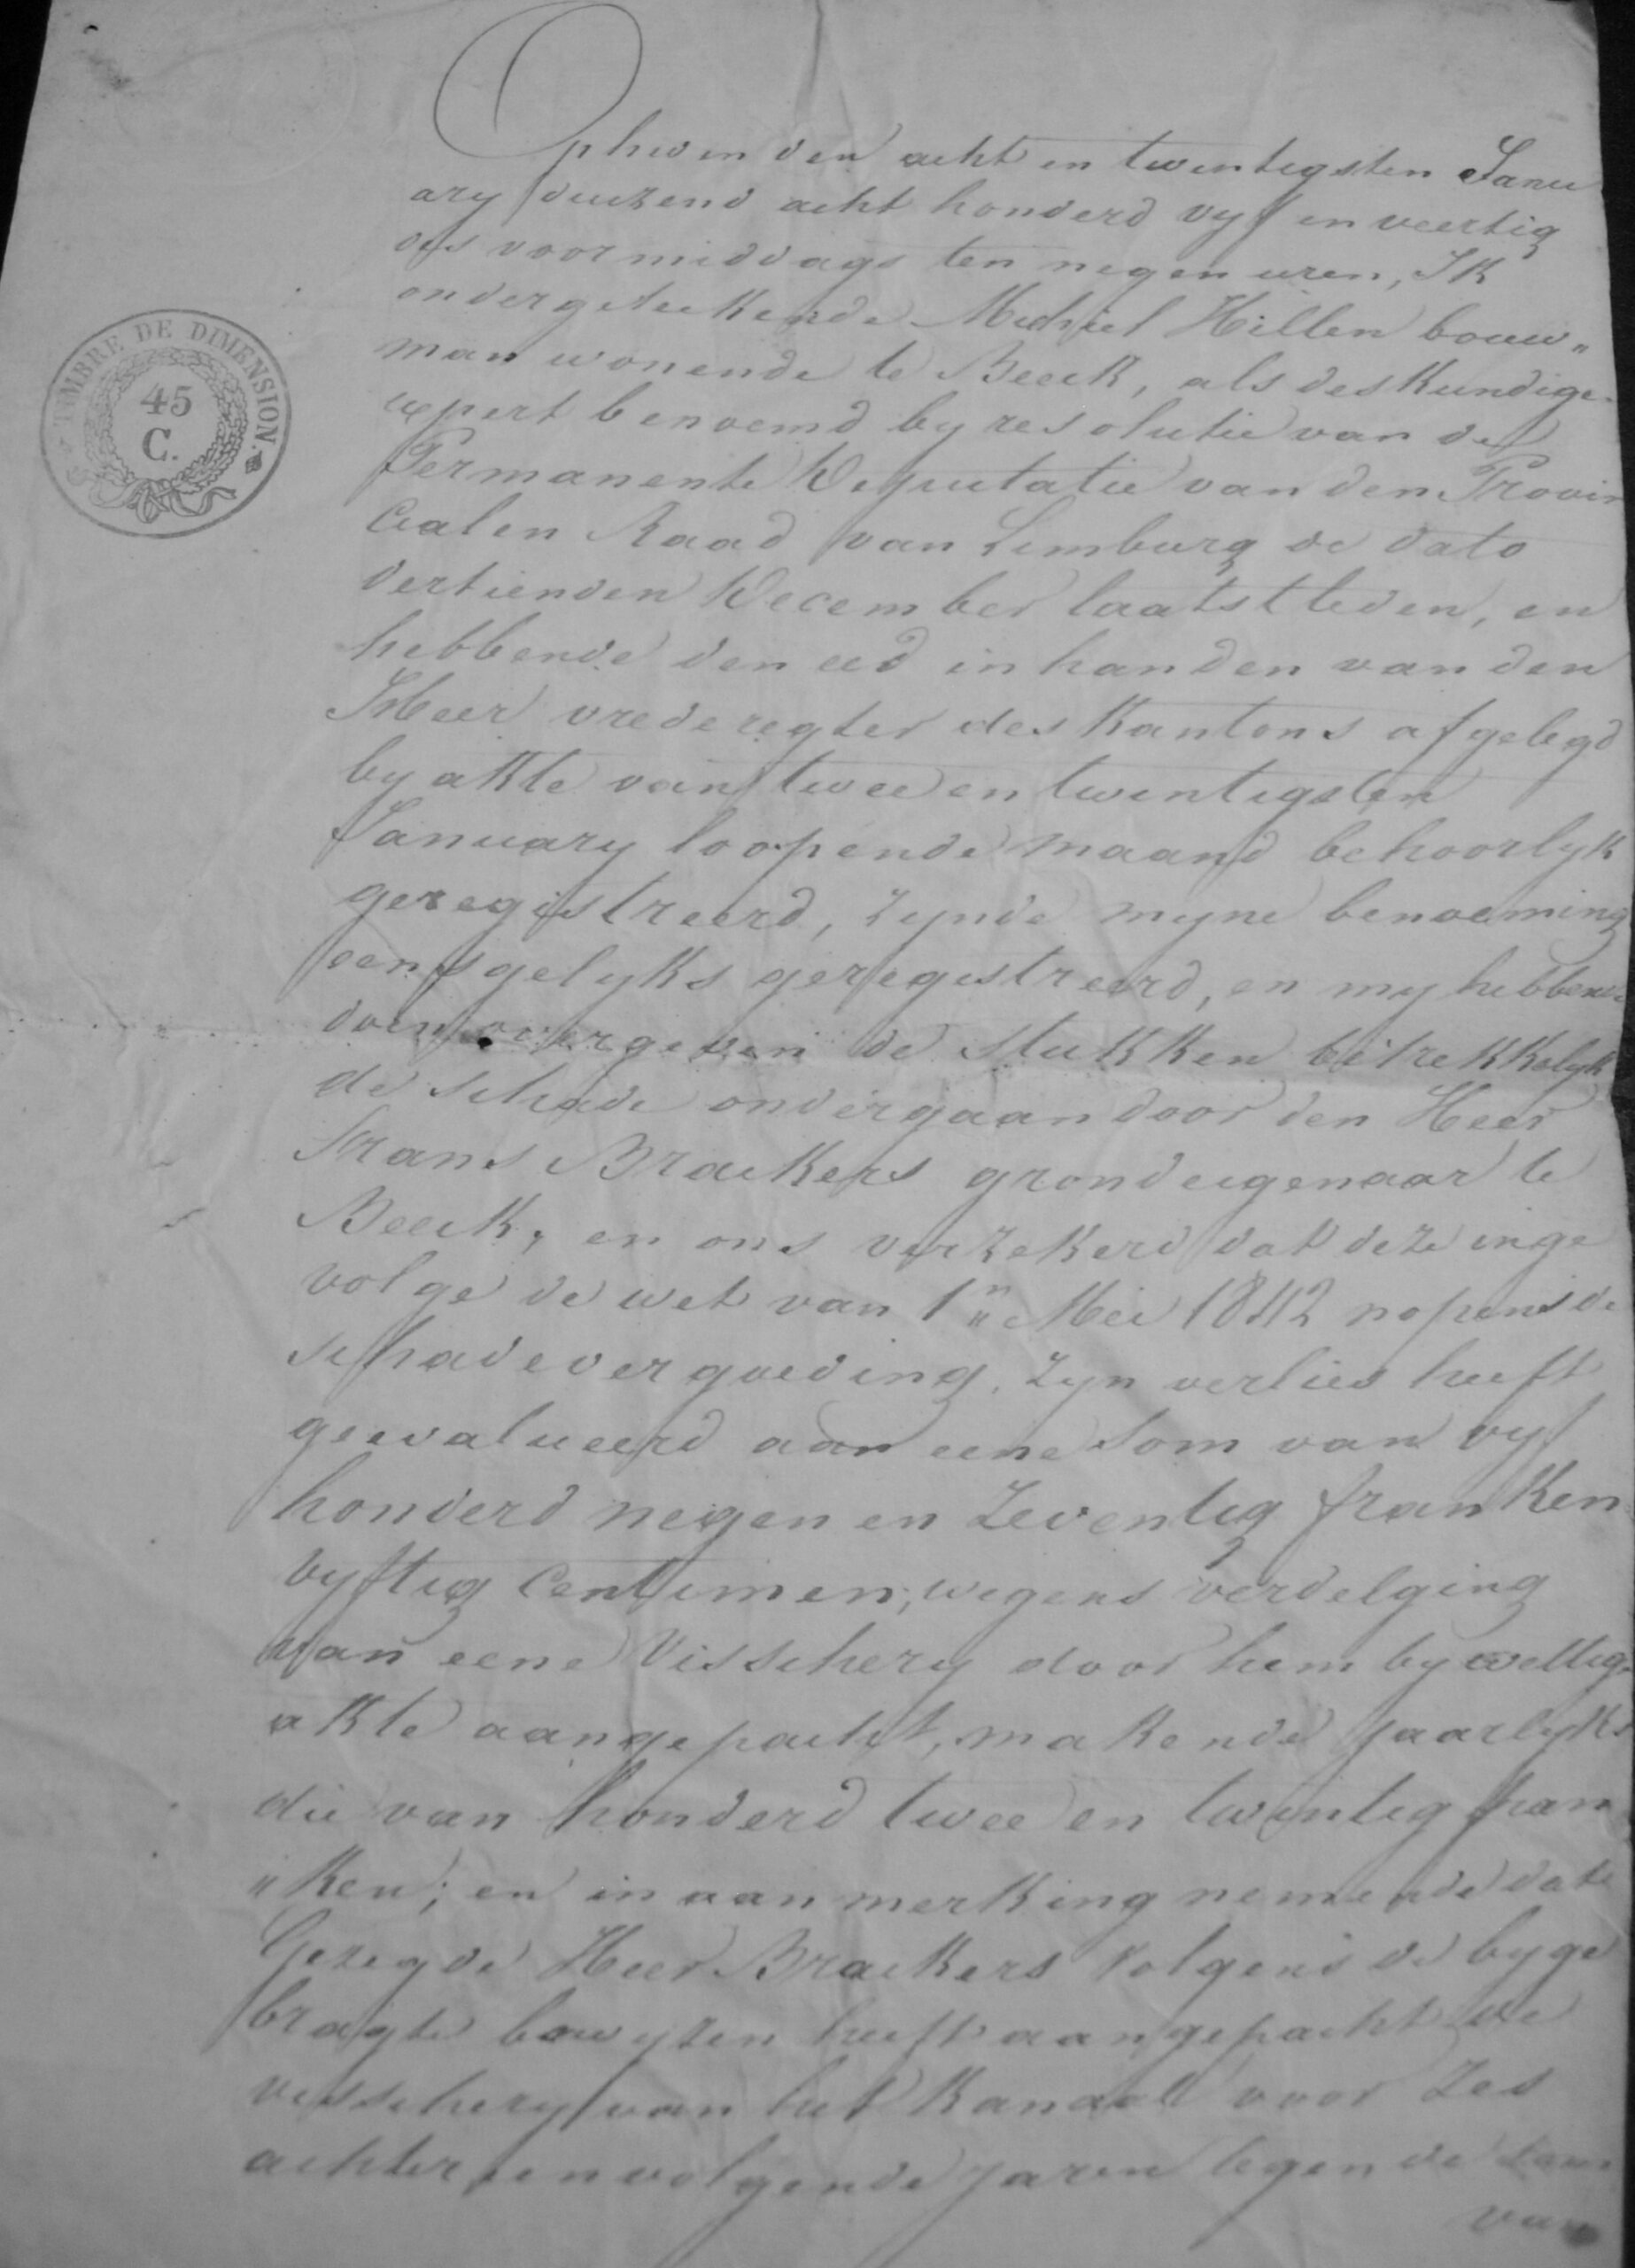 Op heden den acht en twintigsten Janu
ary duizend acht honderd vyf en veertig
des voormiddags ten negen uren, Ik
ondergeteekende Michiel Hillen bouw„
man wonende te Beeck, als deskundige
expert benoemd by resolutie van de
Permanente Deputatie van den Provin
cialen Raad van Limburg de dato
dertienden December laatstleden, en
hebbende den eed in handen van den
Heer vrederegter des kantons afgelegd
by akte van twee en twintigsten
January loopende maand behoorlyk
geregistreerd, zynde myne benoeming
eensgelyks geregistreerd, en my hebbende
doen overgeven de stukken betrekkelyk
de schade ondergaan door den Heer
Frans Brackers grondeigenaar te
Beeck, en ons verzekerd dat deze inge
volge de wet van 1n Mei 1842 nopens de
schadevergoeding, zyn verlies heeft
geevalueerd aan eene som van vyf
honderd negen en zeventig franken
vyftig centimen, wegens verdelging
van eene visschery door hem by wettige
akte aangepacht, makende jaarlyks
die van honderd twee en twintig fran
„ken; en in aanmerking nemende dat
Gezegde Heer Brackers volgens de byge
bragte bewyzen heeft aangepacht de
visschery van het kanaal voor zes
achtereenvolgende jaren tegen de som
van
TIMBRE DE DIMENSION.
45
C.